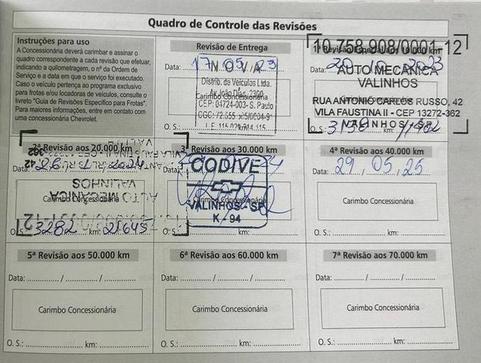 Quadro de Controle das Revisões
Instruções para uso
A Concessionária deverá carimbar e assinar o
quadro correspondente a cada revisão que efetuar,
indicando a quilometragem, o nº da Ordem de
Serviço e a data em que o serviço foi executado.
Caso o veículo pertença ao programa exclusivo
para frotas e/ou locadoras de veículos, consulte o
livreto "Guia de Revisões Específico para Frotas".
Para maiores informações, entre em contato com
uma concessionária Chevrolet.
Revisão de Entrega
Data: 17
NOVA
Distrib. de Veículos Ltda.
CEP: 04724-003-S. Paulo
O. S.:
10.758.908/0001-12
Data: 20
AUTO MECANICA
VALINHOS
RUA ANTONIO CARLOS RUSSO, 42
VILA FAUSTINA II - CEP 13272-362
VALINHOS
O. S.:
2ª Revisão aos 20.000 km
Data:
AUTO MECANICA
VALINHOS
O. S.: 3282 km: 21645
3ª Revisão aos 30.000 km
CODIVE
VALINHOS - SP
K - 94
4ª Revisão aos 40.000 km
Data: 29 . 05 . 25
Carimbo Concessionária
O. S.: km:
5ª Revisão aos 50.000 km
Data: / /
Carimbo Concessionária
O. S.: km:
6ª Revisão aos 60.000 km
Data: / /
Carimbo Concessionária
O. S.: km:
7ª Revisão aos 70.000 km
Data: / /
Carimbo Concessionária
O. S.: km: